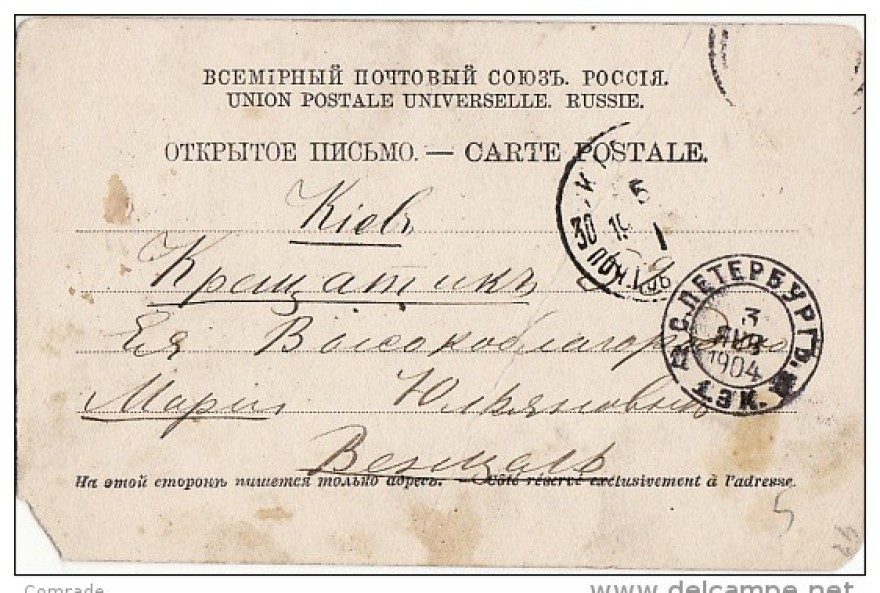 ВСЕМІРНЫЙ ПОЧТОВЫЙ СОЮЗЪ. РОССІЯ.
UNION POSTALE UNIVERSELLE. RUSSIE.
ОТКРЫТОЕ ПИСЬМО. — CARTE POSTALE.
Кіевъ
Крещатикъ
Ея Высокоблагородію
Маріи Юліановнѣ
Венцель
На этой сторонѣ пишется только адресъ. — Côté réservé exclusivement à l'adresse.
С.ПЕТЕРБУРГЪ.
3
ЯНВ
1904
1.ЭК.
30
5
Comrade
www.delcampe.net